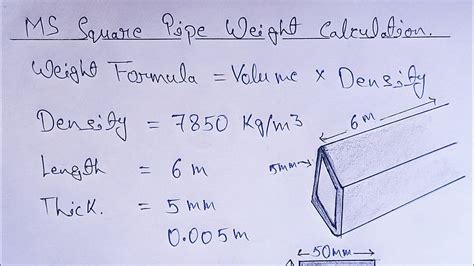 MS Square Pipe Weight Calculation.
Weight Formula = Volume × Density
Density = 7850 Kg/m3
Length = 6 m
Thick. = 5 mm
0.005m
6 m
5mm
50mm